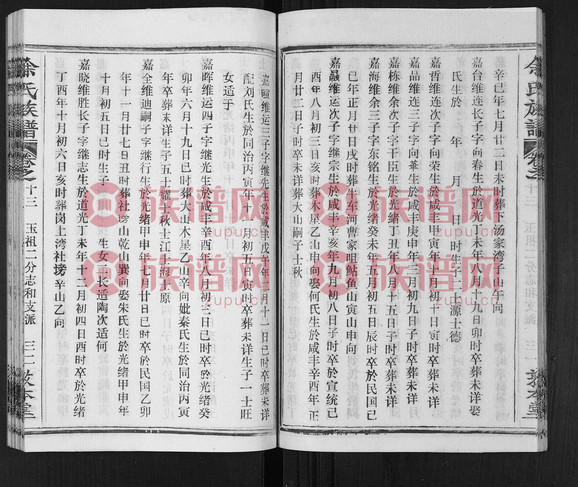 辛巳年七月二十二日未时葬下汤家湾子山午向
嘉台维连长子字向春生於道光未年六月十九日卯时卒葬未详娶
氏生於 年 月 日 时生子二士源士德
嘉哲维连次子字向荣生於咸丰甲寅年 月初三日寅时卒葬未详
嘉品维连三子 生於咸丰庚申年三月初九日子时卒葬未详
嘉栋维余次子字干臣生於光绪丁丑年八月十五日丑时卒葬未详
嘉海维余三子字东铭生於光绪癸未年五月初五日辰时卒葬於民国
己年正月廿日戌时葬牛车河曹家咀鲇鱼山寅山申向
嘉 维运次子字继宗生於咸丰辛亥年九月初八日子时卒於宣统己
酉年八月初三日时葬大山木星乙山辛向娶何氏生於咸丰辛酉年正
月廿二日子时卒未详葬大山嗣子士秋
嘉 维运三子字继先生於咸丰戊午年 月十一日 时卒葬未详
配刘氏生於同治丙寅年十月初五 寅时卒葬未详生子一士旺
女适于
嘉晖维运四子字继光生於咸丰辛酉年八月初三日巳时卒於光绪癸
卯年六月十九日巳时葬大山木星乙山辛向妣秦氏生於同治丙寅
年 卒葬未详生子五士 士秋士江士海士原
嘉全维迪嗣子字继行生於光绪甲申年七月廿日巳时卒於民国乙卯
年十一月廿七日丑时葬社塝山乾山巽向娶朱氏生於光绪甲申年
十月初五日巳时生子 生女二长适陶次适何
嘉晓维胜长子字继志生於道光丁未年十二月初四日酉时卒於光绪
丁酉年十月初六日亥时葬岗上湾社塝辛山乙向
余氏族谱 卷之十三 玉祖二分志和支派 三二 敦本堂
族谱网
zupu.cn